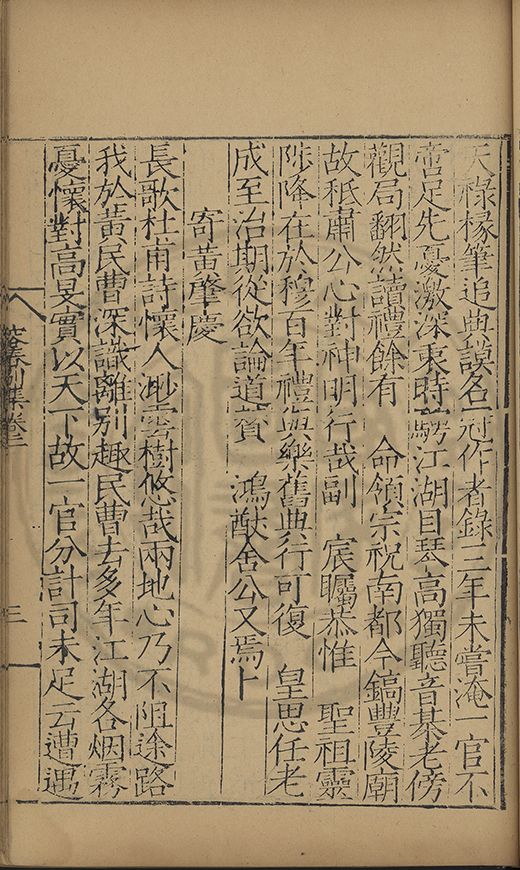 天祿椽筆追典謨名冠作者錄三年未嘗淹一官不
啻足先憂激深衷時騁江湖目琴高獨聽音棊老傍
觀局翻然讀禮餘有 命領宗祝南都今鎬豐陵廟
故秪肅公心對神明行哉副 宸矚恭惟 聖祖靈
陟降在於穆百年禮與樂舊典行可復 皇思任老
成至治期從欲論道贊 鴻猷舍公又焉卜
寄黃肇慶
長歌杜甫詩懷人渺雲樹悠哉兩地心乃不阻途路
我於黃民曹深識離別趣民曹去多年江湖各烟霧
憂懷對高旻實以天下故一官分計司未足云遭遇
卷二
三